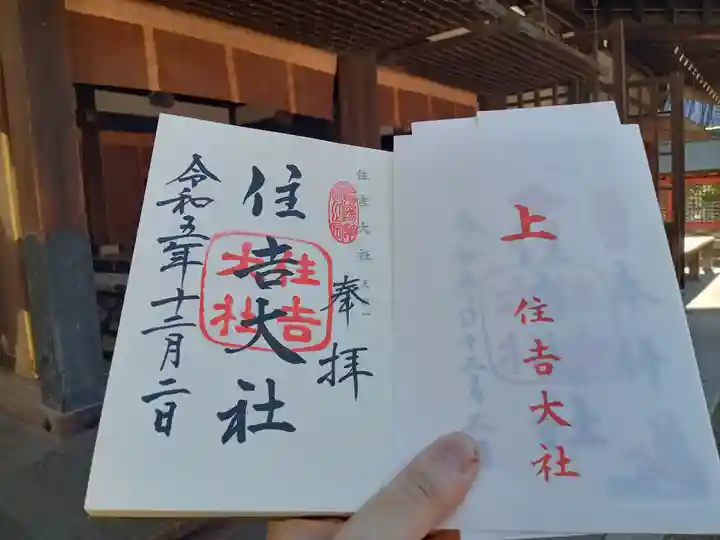 上
住吉大社
住吉大社
奉拝
住吉大社
住吉大社
令和五年十二月二日